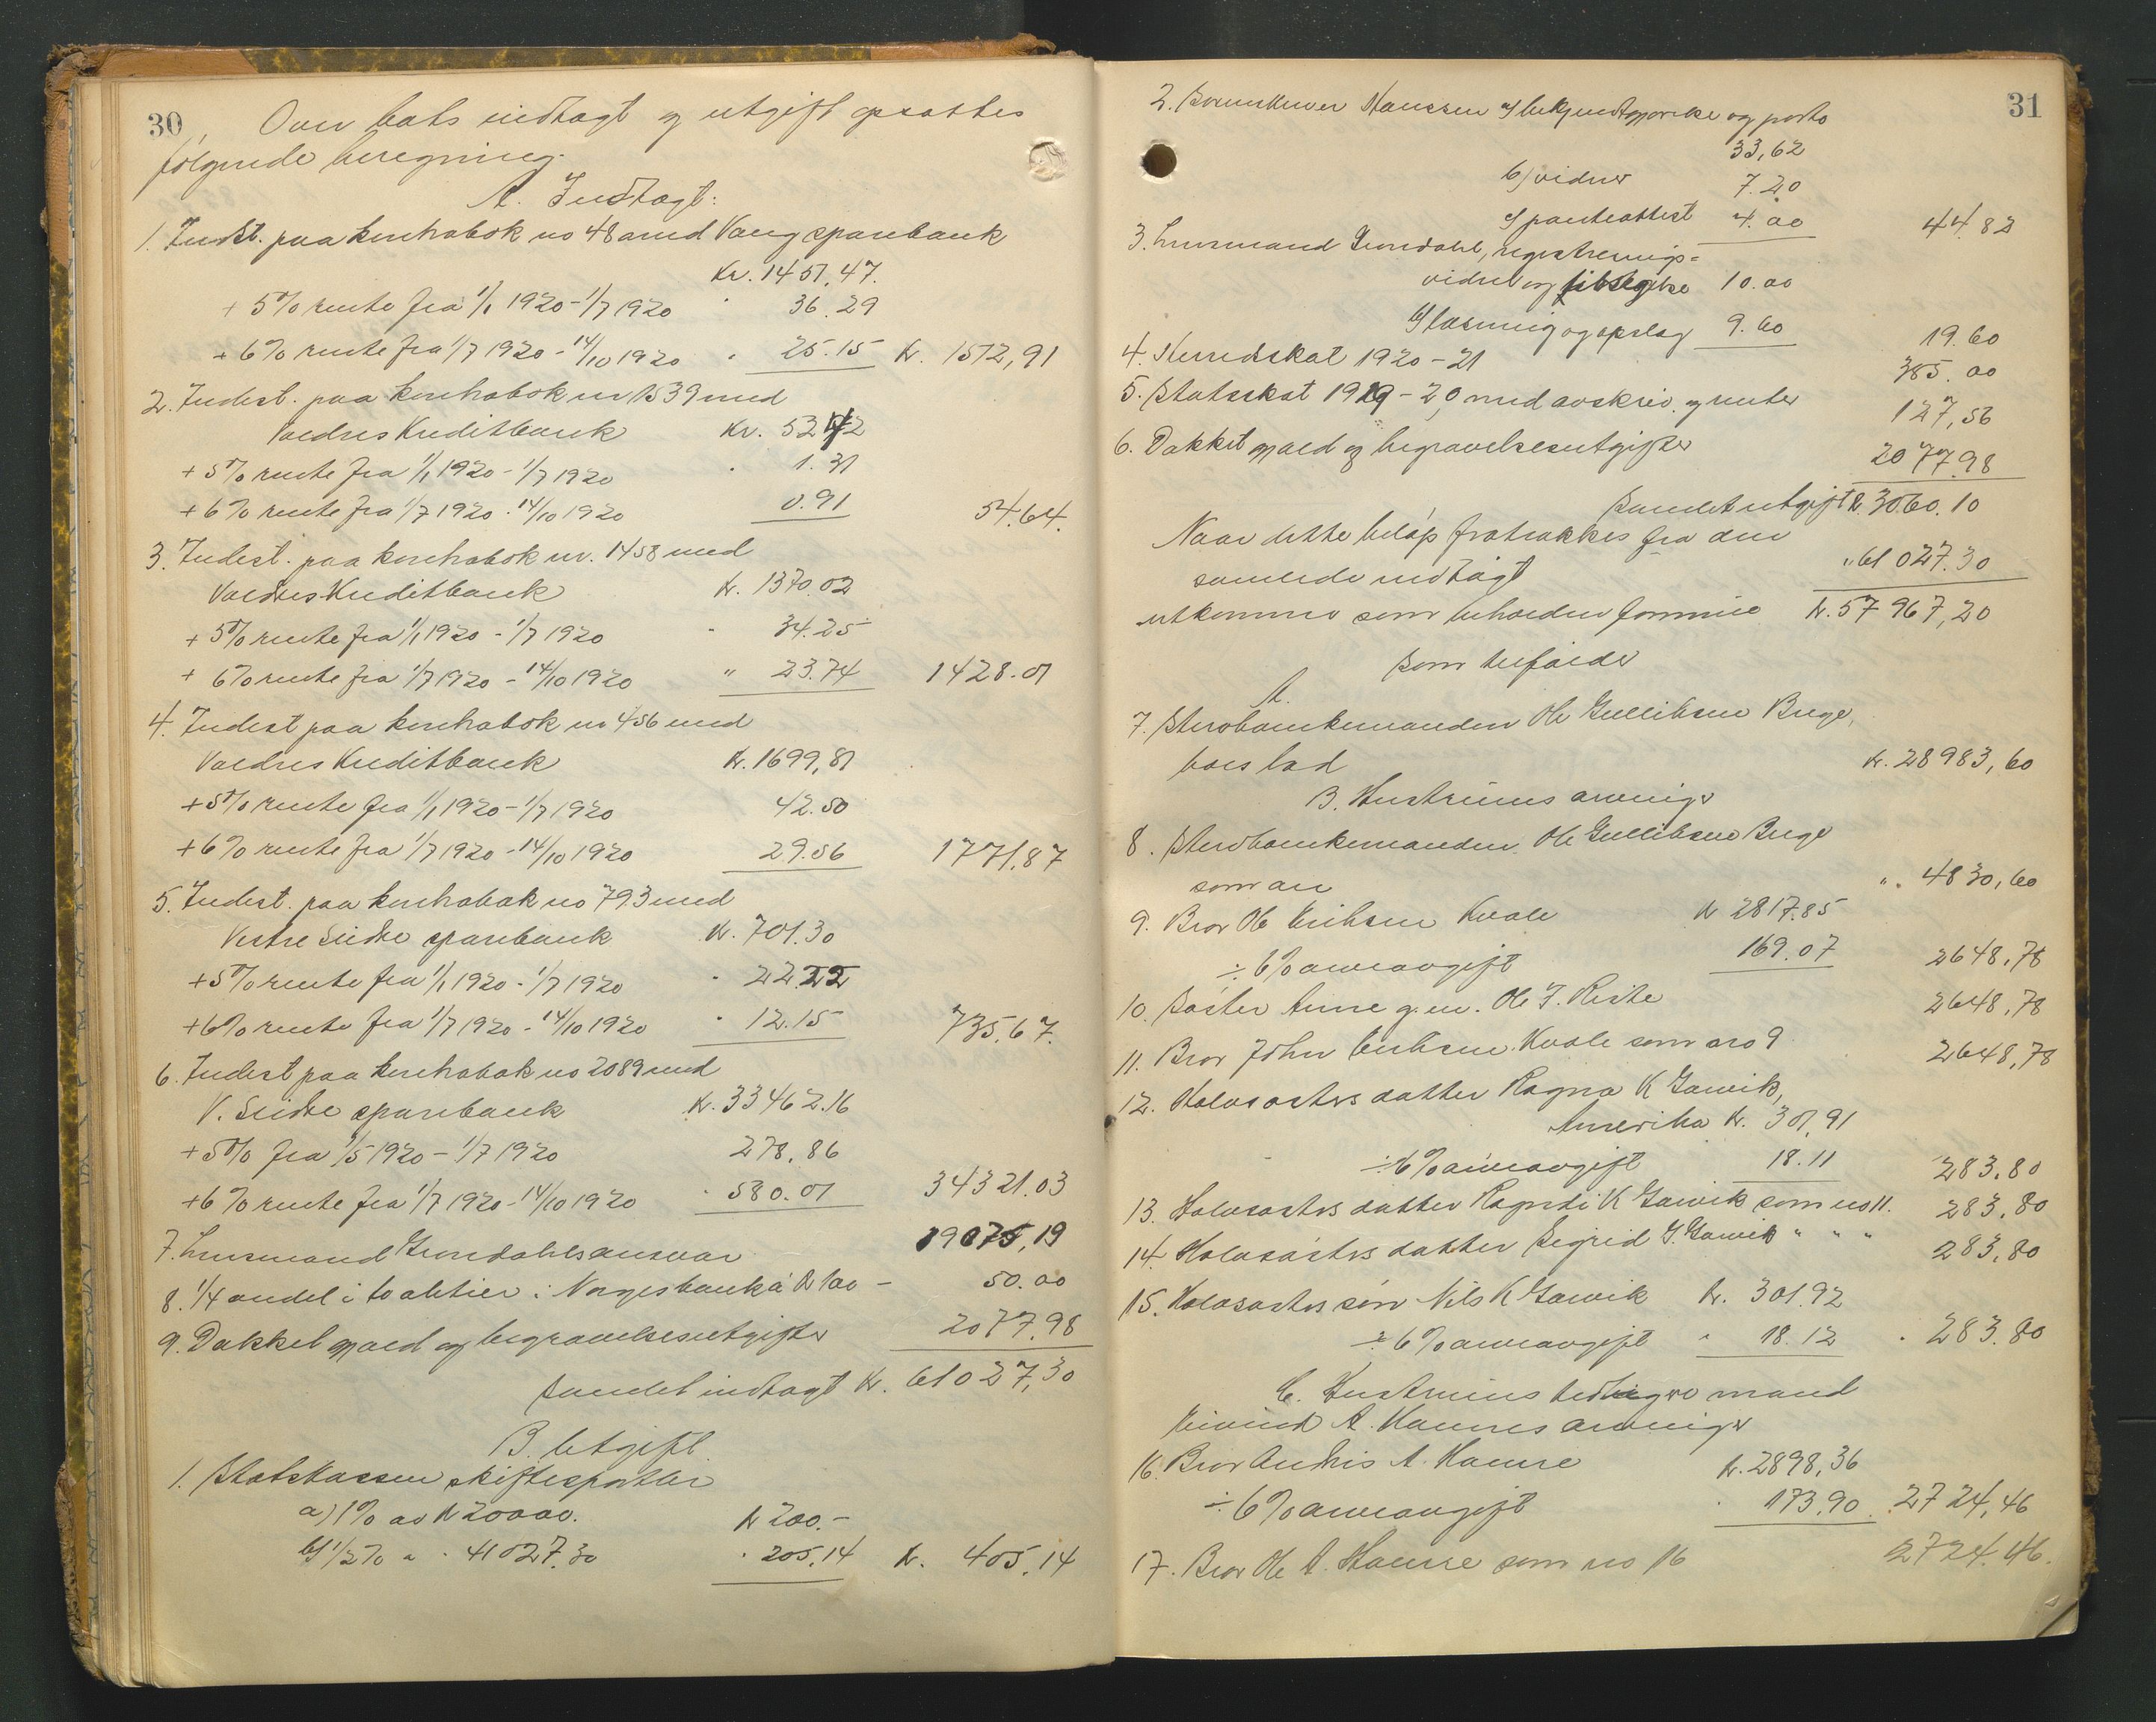 30
Over bots indtægt og utgift opsattes
følgende beregning.
A. Indtægt:
1. Indst. paa kontrabok no 48 a med Vang sparebank
Kr. 1451,47.
+ 5% rente fra 1/1 1920 - 1/7 1920 " 36.29
+ 6% rente fra 1/7 1920 - 14/10 1920 " 25.15 Kr. 1512,91
2. Indest. paa kontrabok no 1539 med
Valdres Kreditbank Kr. 52.42
+ 5% rente fra 1/1 1920 - 1/7 1920 " 1.31
+ 6% rente fra 1/7 1920 - 14/10 1920 0.91 54.64.
3. Indest. paa kontrabok nr. 1458 med
Valdres Kreditbank Kr. 1370.02
+ 5% rente fra 1/1 1920 - 1/7 1920 " 34.25
+ 6% rente fra 1/7 1920 - 14/10 1920 " 23.74 1428.01
4. Indest paa kontrabok no 456 med
Valdres Kreditbank Kr. 1699,81
+ 5% rente fra 1/1 1920 - 1/7 1920 42.50
+ 6% rente fra 1/7 1920 - 14/10 1920 29.56 1771.87
5. Indest. paa kontrabok no 793 med
Vestre Slidre sparebank Kr. 701.30
+ 5% rente fra 1/1 1920 - 1/7 1920 " 22.22
+ 6% rente fra 1/7 1920 - 14/10 1920 " 12.15 735.67.
6. Indest paa kontrabok no 2089 med
V. Slidre sparebank Kr. 33462.16
+ 5% fra 1/5 1920 - 1/7 1920 278.86
+ 6% rente fra 1/7 1920 - 14/10 1920 " 580.01 34321.03
7. Lensmand Grøndahls ansvar 19075,19
8. 1/4 andel i to aktier i Norges bank á Kr 100 - 50.00
9. Dækket gjæld og begravelsesutgifter 2077.98
Samlet indtægt Kr. 61027,30
B. Utgift.
1. Statskassen skiftesportler
a) 1% av Kr 20000. Kr 200.-
b) 1/2% " " 41027.30 " 205.14 Kr. 405.14
31
2. Sorenskriver Hanssen a) bekjendtgjørelse og porto
33,62
b) vidner 7.20
c) panteattest 4.00 44.82
3. Lensmand Grøndahl, registrerings-
vidner og 10.00
b) læsning og opslag 9.60 19.60
4. Herredskat 1920-21 385.00
5. Statsskat 1919-20 med avskriv. og renter 127,56
6. Dækket gjæld og begravelsesutgifter 2077.98
Samlet utgift Kr. 3060.10
Naar dette beløp fratrækkes fra den
samlede indtægt " 61027.30
utkommer som beholden formue Kr. 57967,20
som tilfalder
A.
7. Stervboenkemanden Ole Gulliksen Brege,
boeslod Kr. 28983,60
B. Hustruens arvinger
8. Stervboenkemanden Ole Gullibsen Brege
som arv " 4830,60
9. Bror Ole Eriksen Kvale Kr 2817.85
÷ 6% arveavgift 169.07 2648,78
10. Søster Anne g.m. Ole T. Riste 2648,78
11. Bror John Eriksen Kvale som no 9 2648,78
12. Halvsøsters datter Ragna K Garvik,
Amerika Kr. 301,91
÷ 6% arveavgift 18.11 283.80
13. Halvsøsters datter Ragndi K Garvik som no 11. 283,80
14. Halvsøsters datter Sigrid G. Garvik " " " 283,80
15. Halvsøsters søn Nils K Garvik Kr. 301.92
÷ 6% arveavgift " 18.12 " 283.80
C. Hustruens tidligere mand
Eivind A. Hamres arvinger
16. Bror Andris A. Hamre Kr. 2898,36
÷ 6% arveavgift " 173.90 2724,46
17. Bror Ole A. Hamre som no 16 2724.46.